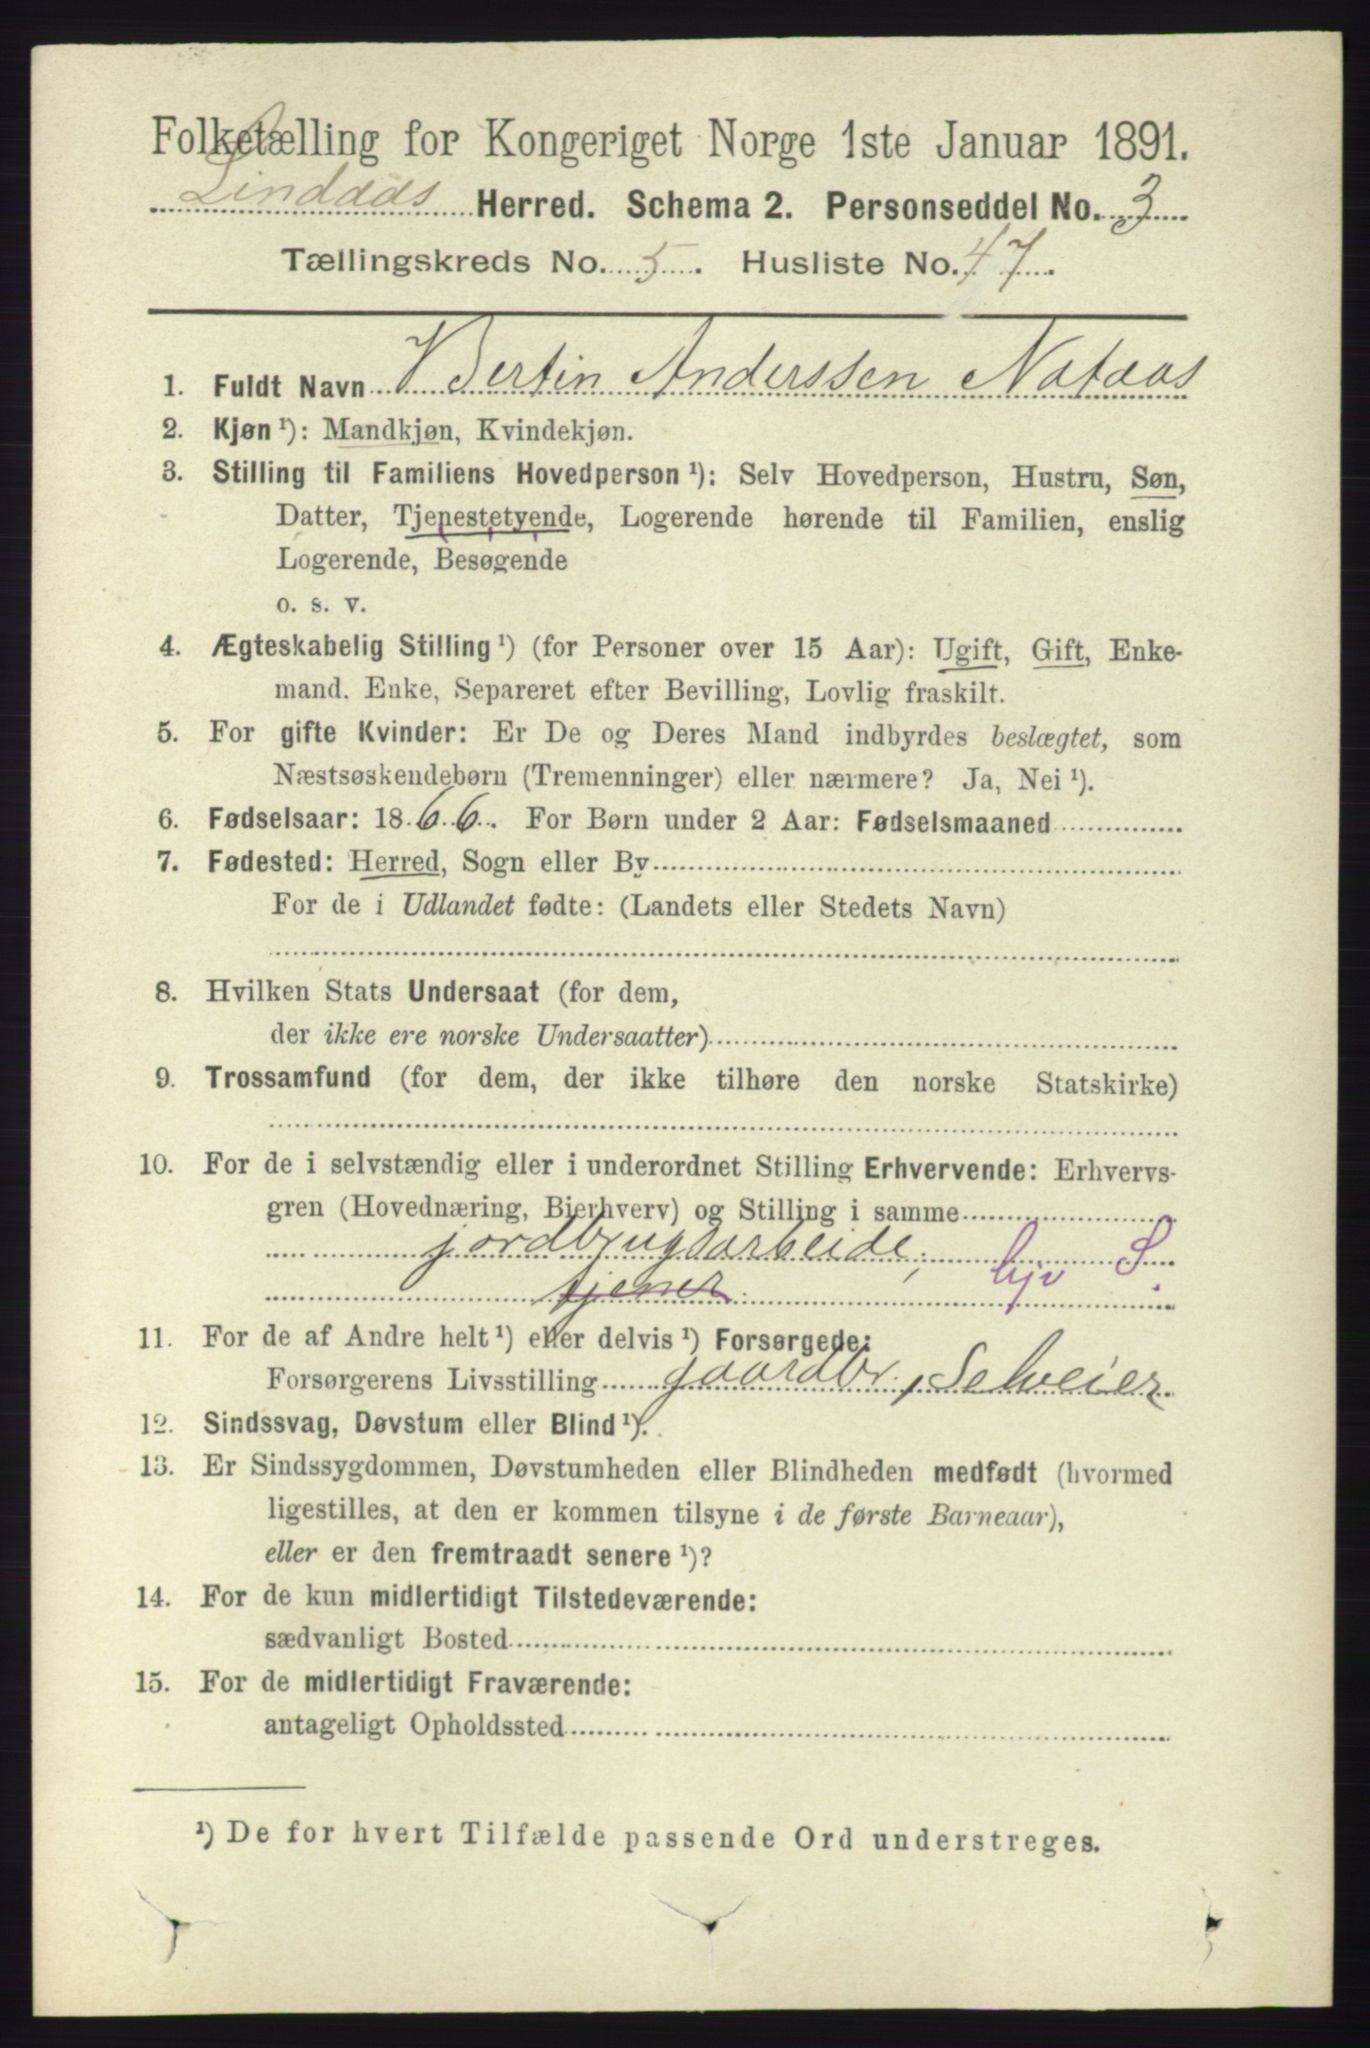 Folketælling for Kongeriget Norge 1ste Januar 1891.
Lindaas Herred. Schema 2. Personseddel No. 3
Tællingskreds No. 5. Husliste No. 47.
1. Fuldt Navn Bertin Anderssen Nataas
2. Kjøn ¹): Mandkjøn, Kvindekjøn.
3. Stilling til Familiens Hovedperson ¹): Selv Hovedperson, Hustru, Søn,
Datter, Tjenestetyende, Logerende hørende til Familien, enslig
Logerende, Besøgende
o. s. v.
4. Ægteskabelig Stilling ¹) (for Personer over 15 Aar): Ugift, Gift, Enke-
mand, Enke, Separeret efter Bevilling, Lovlig fraskilt.
5. For gifte Kvinder: Er De og Deres Mand indbyrdes beslægtet, som
Næstsøskendebørn (Tremenninger) eller nærmere? Ja, Nei ¹).
6. Fødselsaar: 1866. For Børn under 2 Aar: Fødselsmaaned
7. Fødested: Herred, Sogn eller By
For de i Udlandet fødte: (Landets eller Stedets Navn)
8. Hvilken Stats Undersaat (for dem,
der ikke ere norske Undersaatter)
9. Trossamfund (for dem, der ikke tilhøre den norske Statskirke)
10. For de i selvstændig eller i underordnet Stilling Erhvervende: Erhvervs-
gren (Hovednæring, Bierhverv) og Stilling i samme
jordbrugsarbeide, hjv S
tjener
11. For de af Andre helt ¹) eller delvis ¹) Forsørgede:
Forsørgerens Livsstilling gaardbr., Selveier
12. Sindssvag, Døvstum eller Blind ¹).
13. Er Sindssygdommen, Døvstumheden eller Blindheden medfødt (hvormed
ligestilles, at den er kommen tilsyne i de første Barneaar),
eller er den fremtraadt senere ¹)?
14. For de kun midlertidigt Tilstedeværende:
sædvanligt Bosted
15. For de midlertidigt Fraværende:
antageligt Opholdssted
¹) De for hvert Tilfælde passende Ord understreges.